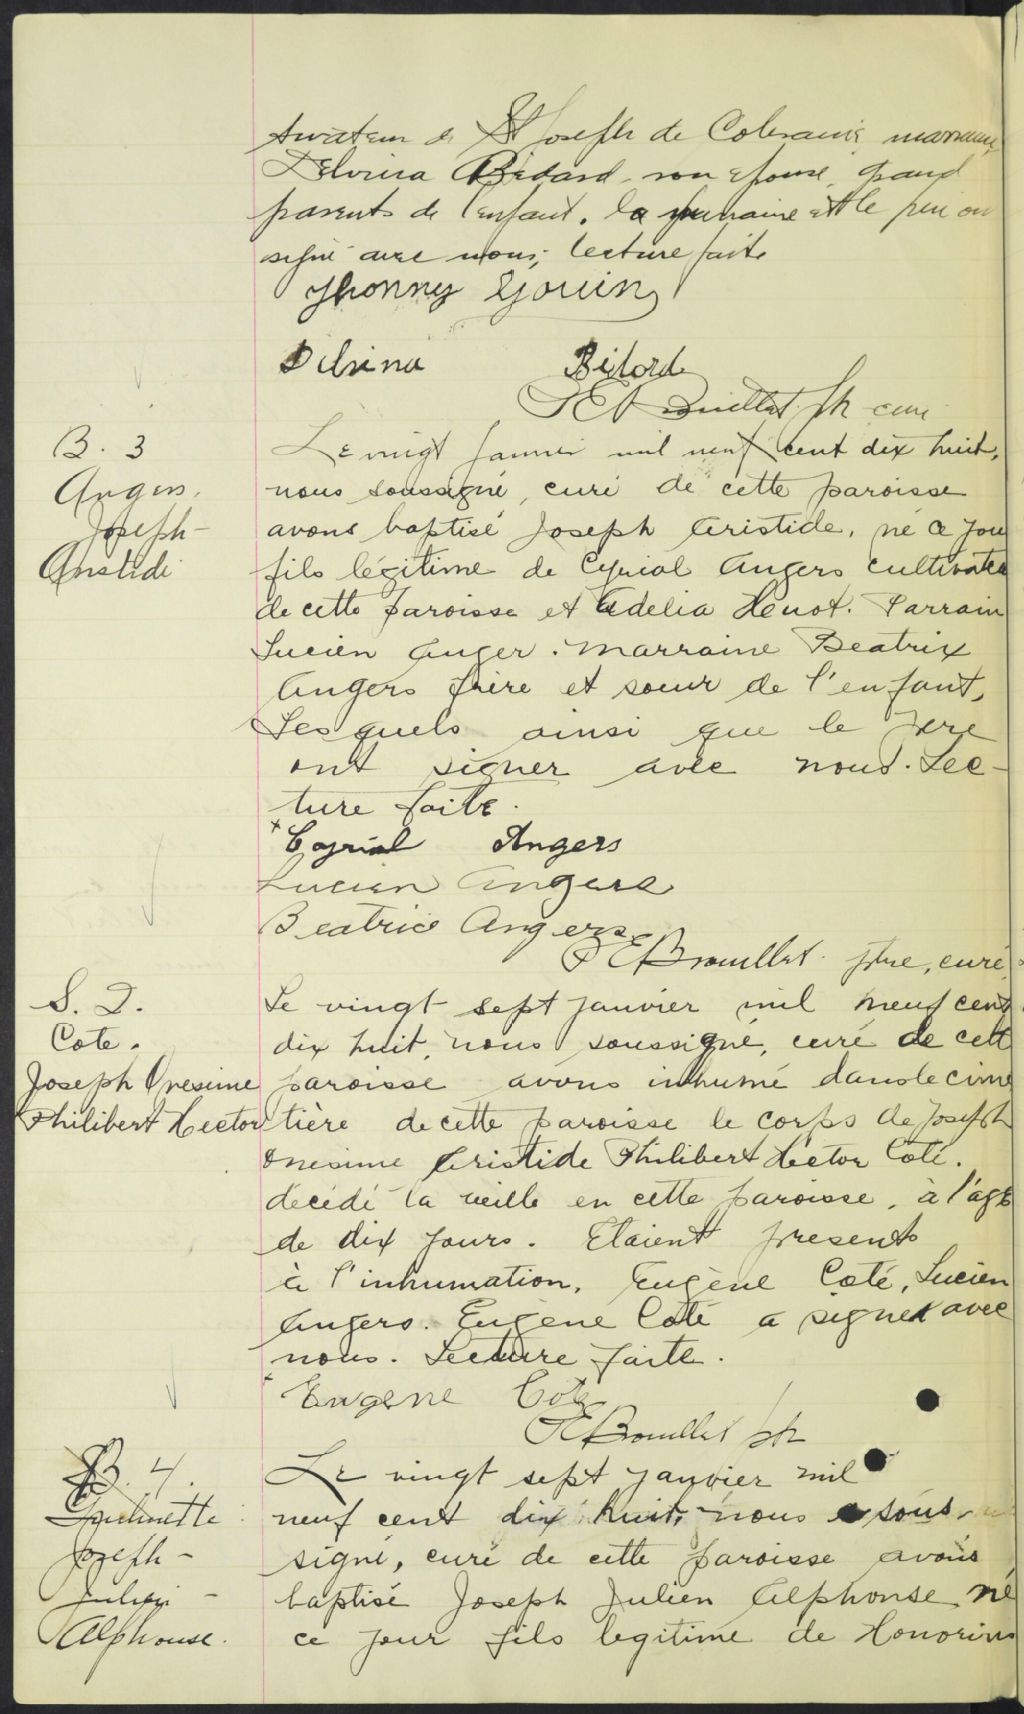 de St Joseph de Coleraine, marraine
Delvina Bédard son épouse, grand
parents de l'enfant. la marraine et le père on
signé avec nous; lecture faite
Jhonny Gouin
Delvina Bédord
P E Brouillet ptr curé
B. 3
Angers,
Joseph-
Aristide
Le vingt janvier mil neuf cent dix huit,
nous soussigné, curé de cette paroisse
avons baptisé Joseph Aristide, né ce jou
fils légitime de Cyrial Angers cultivate
de cette paroisse et Adelia Henot. Parrain
Lucien Auger. Marraine Beatrix
Angers frère et soeur de l'enfant,
Lesquels ainsi que le père
ont signer avec nous. Lec-
ture faite.
x Cyrial Angers
Lucien Angers
Beatrice Angers
P E Brouillet ptre, curé
S. 2.
Cote.
Joseph Onesime
Philibert Hector
Le vingt sept janvier mil neuf cent
dix huit, nous soussigné, curé de cett
paroisse avons inhumé dans le cime
tière de cette paroisse le corps de Joseph
Onesime Aristide Philibert Hector Coté.
décédé la veille en cette paroisse, à l'age
de dix jours. Etaient presents
à l'inhumation, Eugène Coté, Lucien
Angers. Eugène Coté a signer avec
nous. Lecture faite.
x Eugene Cote
P E Brouillet ptr
B. 4.
Joseph -
Julien -
Alphonse.
Le vingt sept janvier mil
neuf cent dix huit, nous sous-
signé, curé de cette paroisse avons
baptisé Joseph Julien Alphonse né
ce jour fils legitime de Honorius